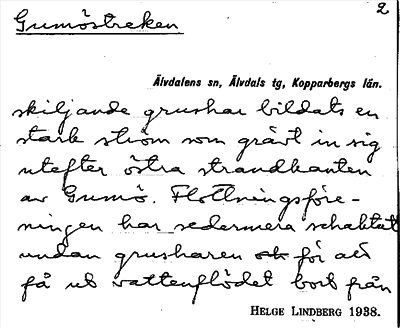 Gumöstreken
2
Älvdalens sn, Älvdals tg, Kopparbergs län.
skiljande grushar bildats en
stark ström som grävt in sig
utefter östra strandkanten
av Gumö. Flottningsföre-
ningen har sedermera schaktat
undan grusharen ok för att
få ut vattenflödet bort från
HELGE LINDBERG 1938.